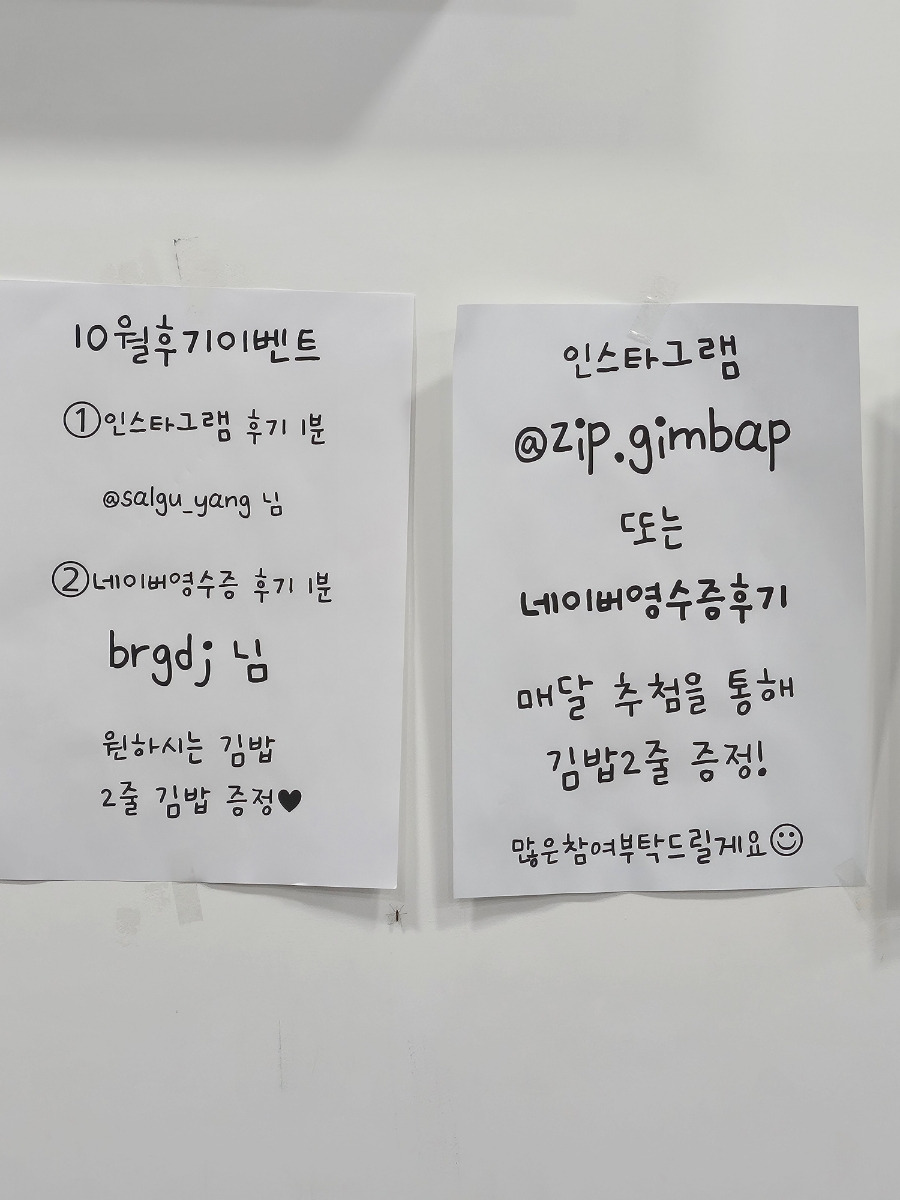 10월후기이벤트
①인스타그램 후기 1분
@salgu_yang 님
②네이버영수증 후기 1분
brgdj 님
원하시는 김밥
2줄 김밥 증정♥
인스타그램
@zip.gimbap
또는
네이버영수증후기
매달 추첨을 통해
김밥2줄 증정!
많은참여부탁드릴게요☺